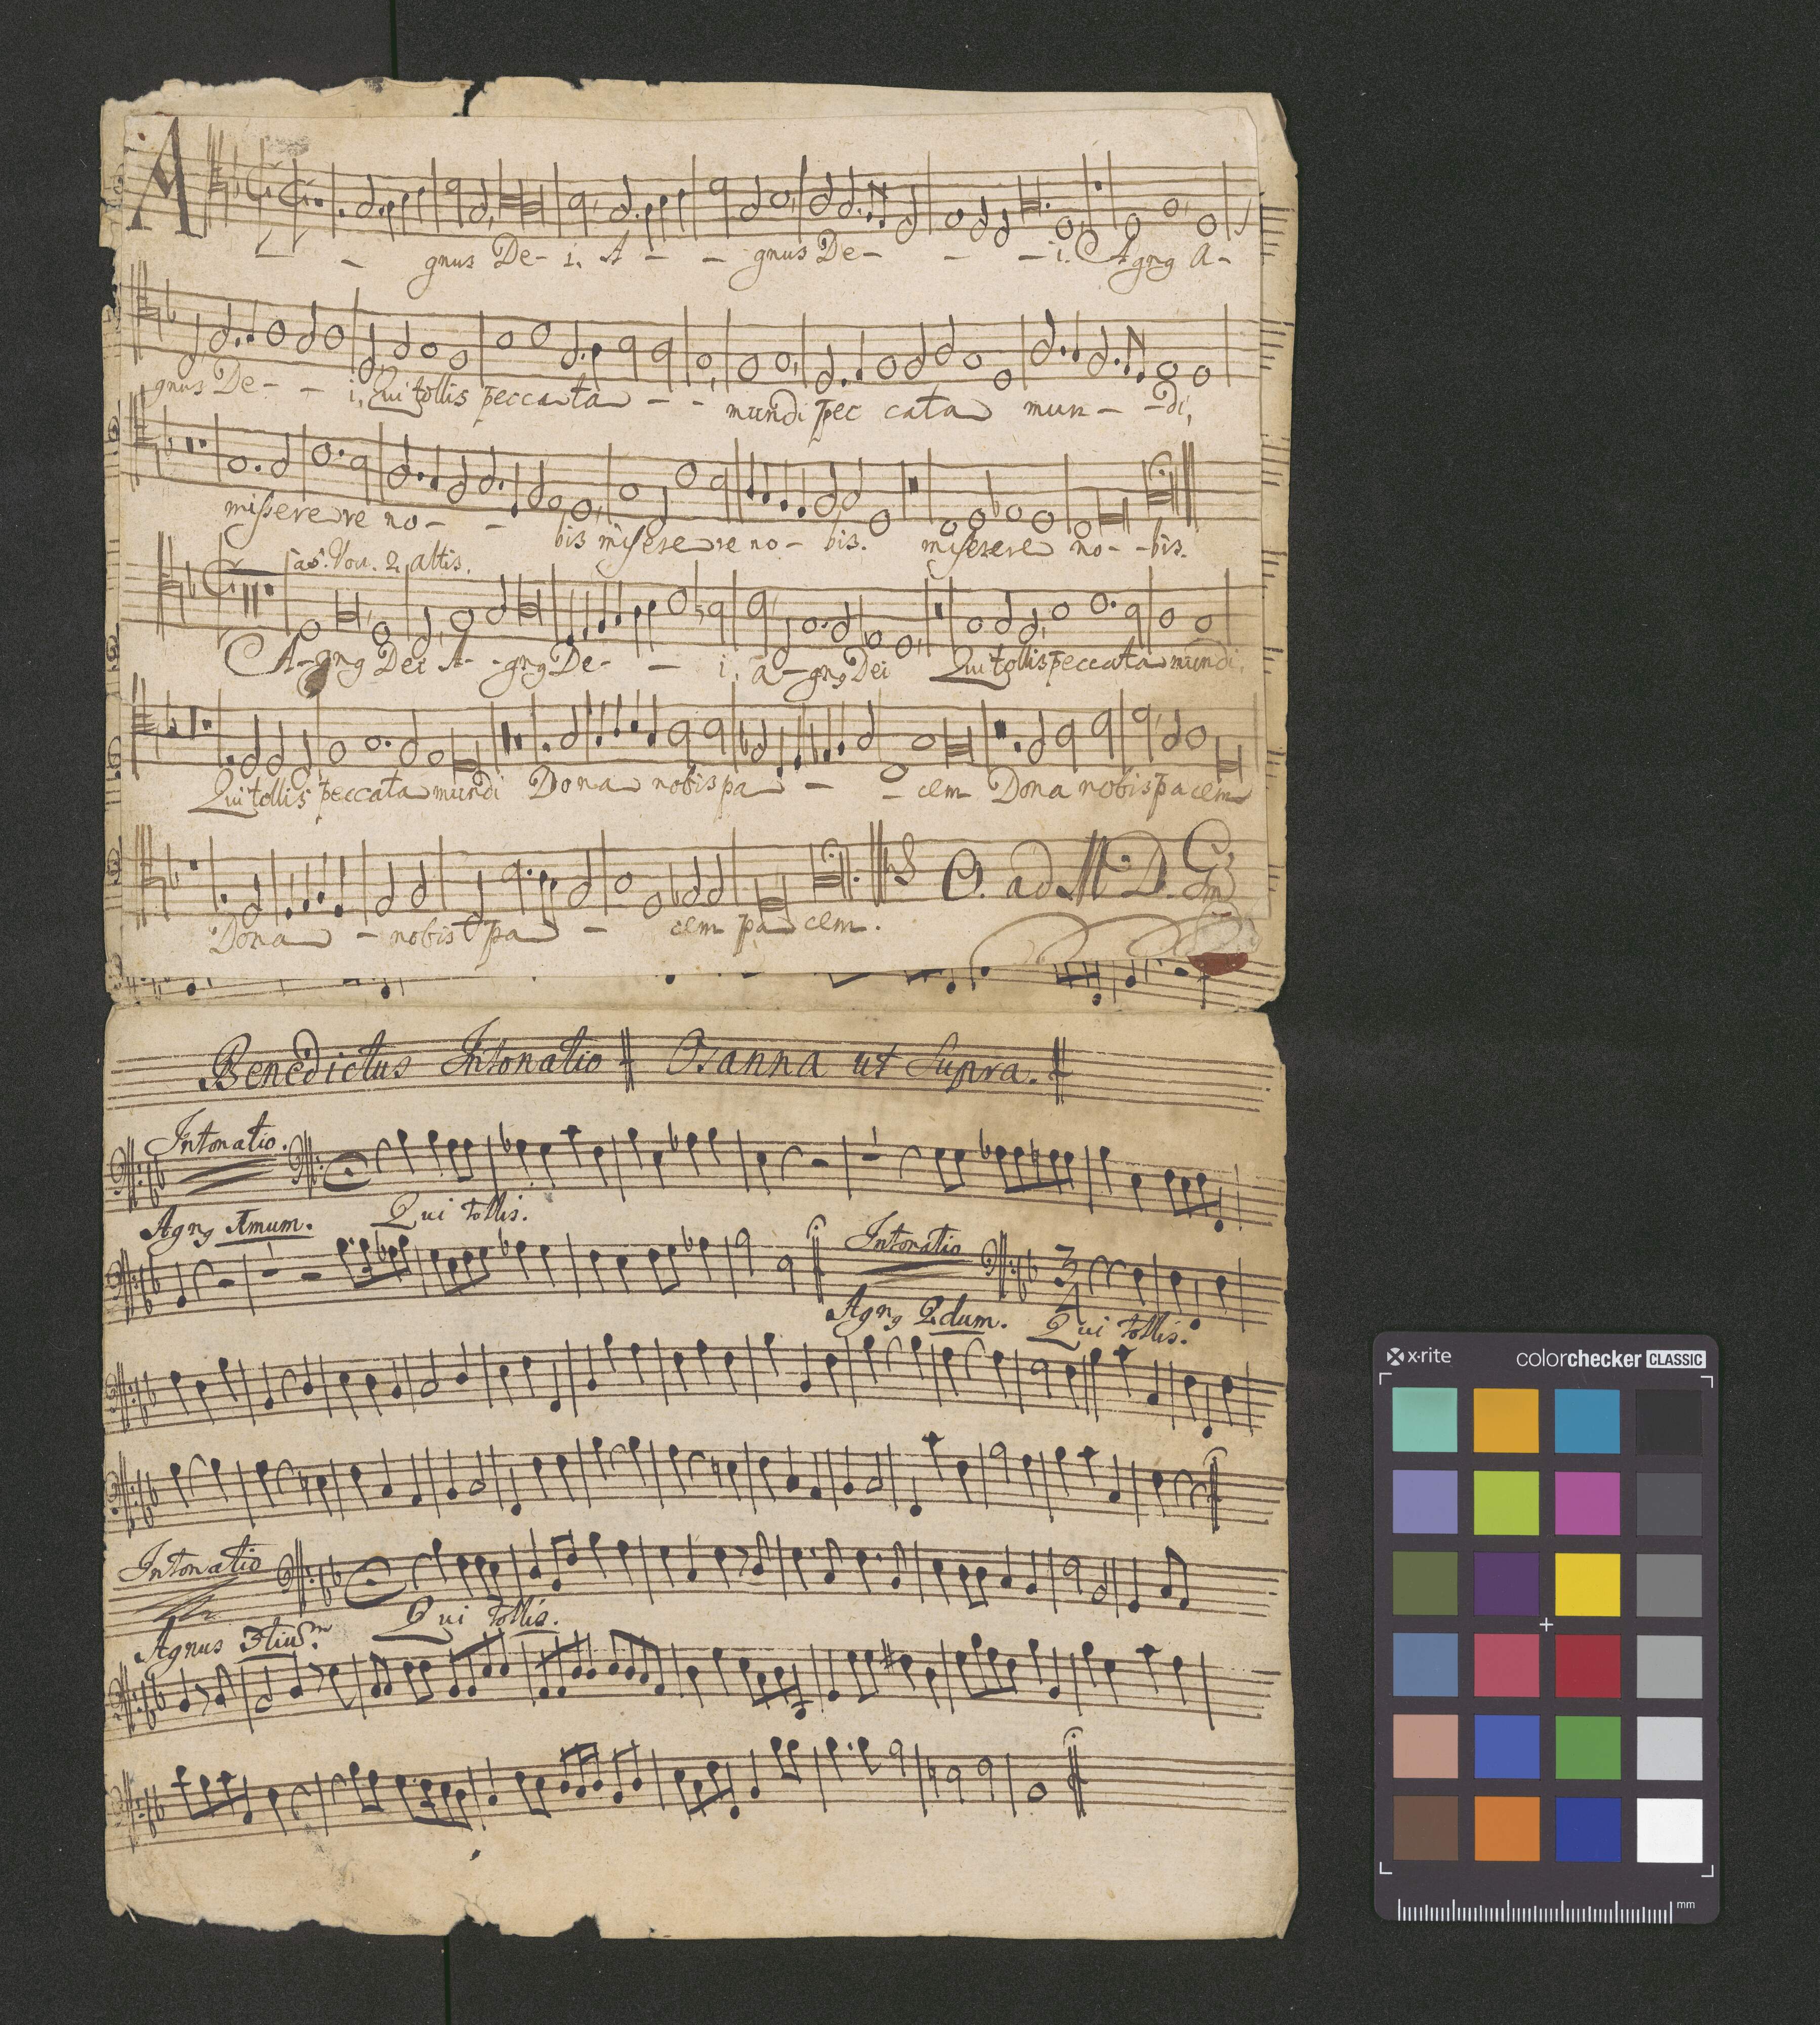 A - gnus De- i. A - - gnus De- - - i. Agng A-
gnus De- - i. Qui tollis peccata - - mundi pec cata mun - -di,
miserere no- - bis miserere no- bis. miserere no- -bis.
à 5. Voc. 2 altis.
A-gng Dei A- -gng De- - i, a-gng Dei Qui tollis peccata mundi,
Qui tollis peccata mundi Dona nobis pa - - cem Dona nobis pa cem
Dona - nobis pa - cem pa cem.
O. ad M. D. G.
Benedictus Intonatio Osanna ut Supra.
Intonatio.
Agng Imum. Qui tollis.
Intonatio
Agng 2dum. Qui tollis.
Intonatio
Agnus 3tium. Qui tollis.
x-rite colorchecker CLASSIC
mm